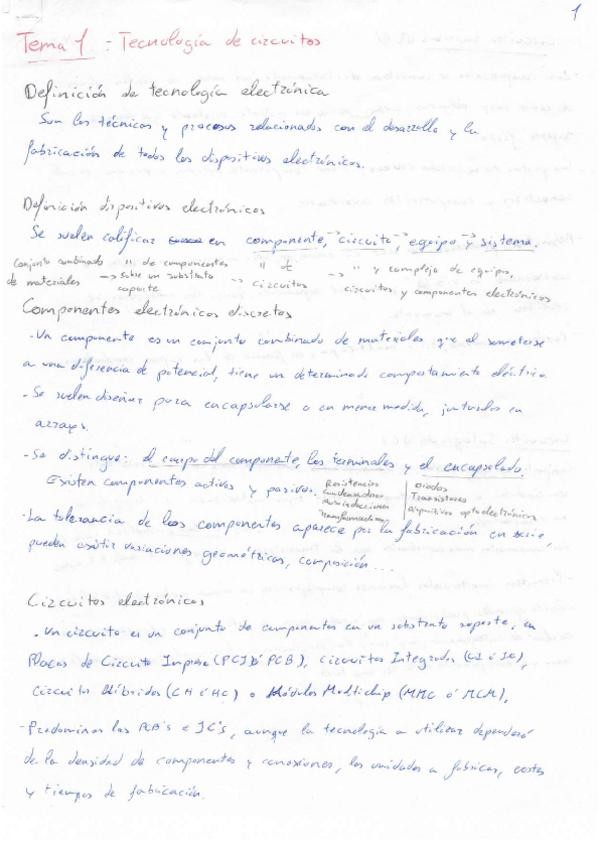 1
Tema 1 : Tecnología de circuitos
Definición de tecnología electrónica
Son las técnicas y procesos relacionados con el desarrollo y la
fabricación de todos los dispositivos electrónicos.
Definición dispositivos electrónicos
Se suelen calificar en componente, → circuito, → equipo y → sistema.
Conjunto combinado de materiales → " de componentes sobre un substrato soporte → " de circuitos → " y complejo de equipos, circuitos y componentes electrónicos
Componentes electrónicos discretos
- Un componente es un conjunto combinado de materiales que al someterse
a una diferencia de potencial, tiene un determinado comportamiento eléctrico
- Se suelen diseñar para encapsularse o en menor medida, juntarlos en
arrays.
- Se distingue: el cuerpo del componente, los terminales y el encapsulado.
Existen componentes activos y pasivos. Resistencias Condensadores Autoinducciones Transformadores | Diodos Transistores Dispositivos optoelectrónicos
- La tolerancia de los componentes aparece por la fabricación en serie,
pueden existir variaciones geométricas, composición...
Circuitos electrónicos
. Un circuito es un conjunto de componentes en un substrato soporte, en
Placas de Circuito Impreso (PCI ó PCB), circuitos Integrados (CI ó IC),
Circuitos Híbridos (CH ó HC) o Módulos Multichip (MMC ó MCM).
- Predominan las PCB's e IC's, aunque la tecnología a utilizar dependerá
de la densidad de componentes y conexiones, las unidades a fabricar, costes
y tiempos de fabricación.